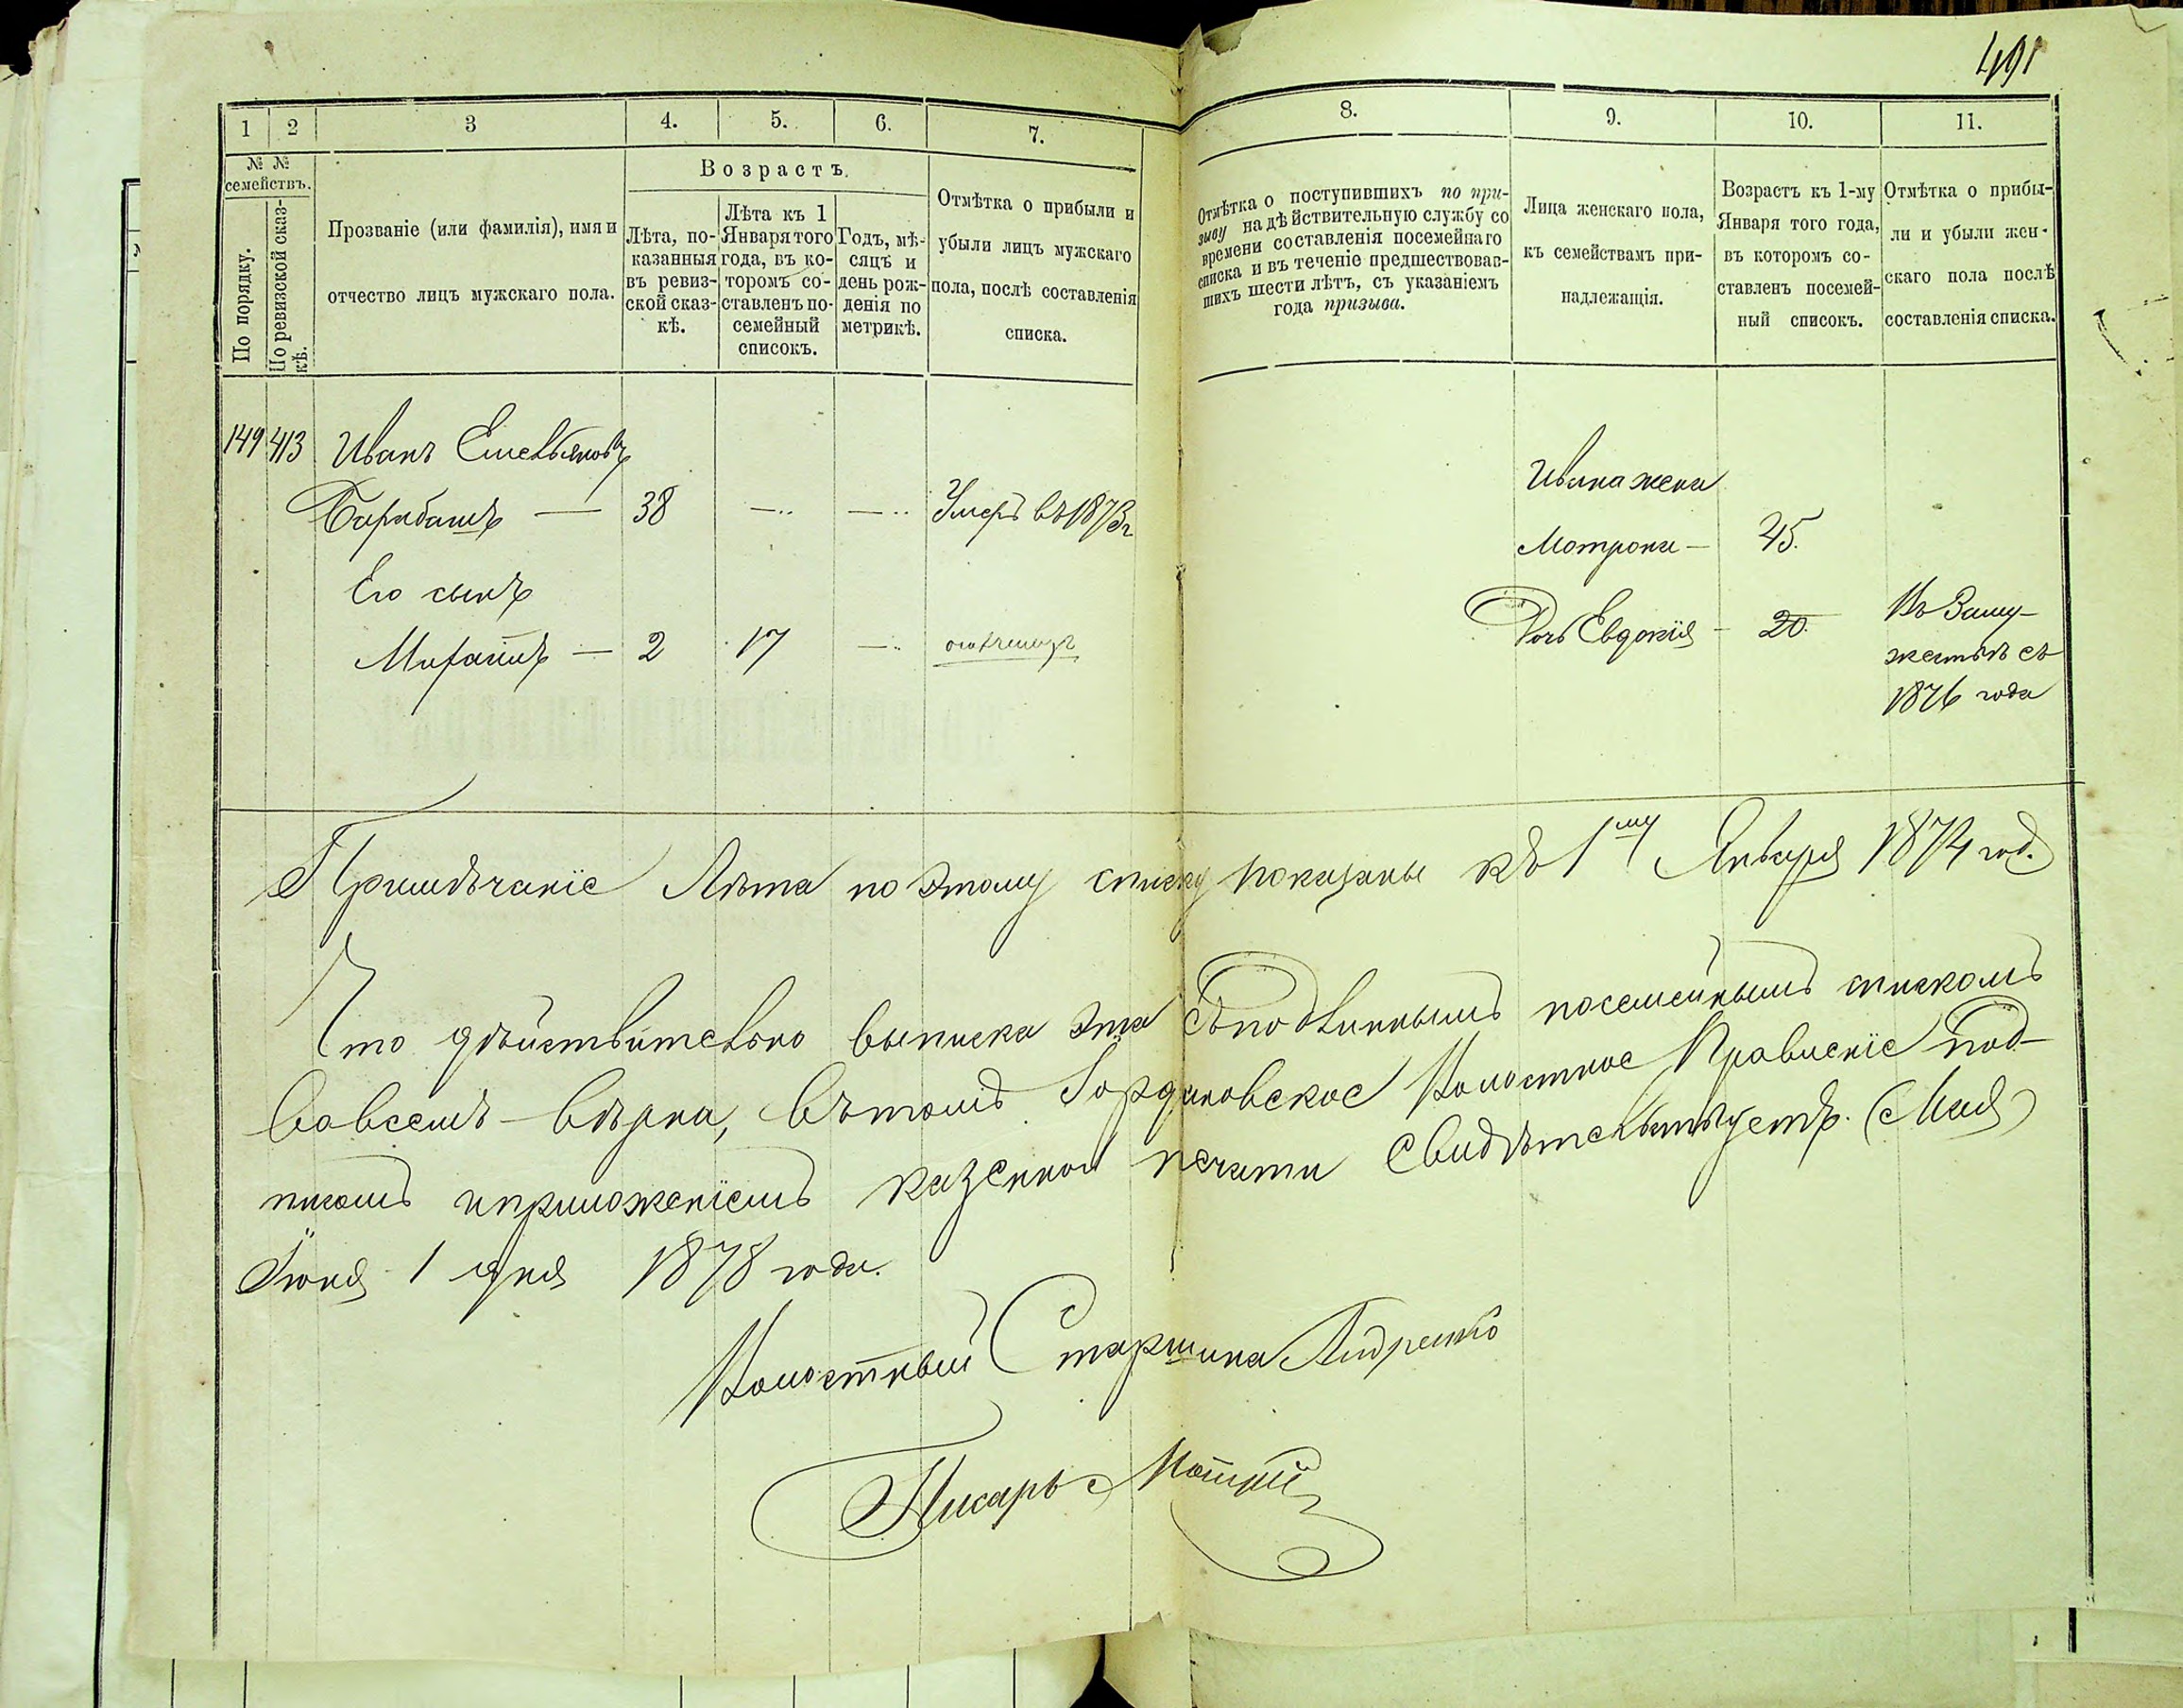 491
1 2 3 4. 5. 6. 7. 8. 9. 10. 11.
№ №
семействъ.
По порядку.
По ревизской сказ-
кѣ.
Прозваніе (или фамилія), имя и
отчество лицъ мужскаго пола.
Возрастъ.
Лѣта, по-
казанныя
въ ревиз-
ской сказ-
кѣ.
Лѣта къ 1
Января того
года, въ ко-
торомъ со-
ставленъ по-
семейный
списокъ.
Годъ, мѣ-
сяцъ и
день рож-
денія по
метрикѣ.
Отмѣтка о прибыли и
убыли лицъ мужскаго
пола, послѣ составленія
списка.
Отмѣтка о поступившихъ по при-
зыву на дѣйствительную службу со
времени составленія посемейнаго
списка и въ теченіе предшествовав-
шихъ шести лѣтъ, съ указаніемъ
года призыва.
Лица женскаго пола,
къ семействамъ при-
надлежащія.
Возрастъ къ 1-му
Января того года,
въ котором со-
ставленъ посемей-
ный списокъ.
Отмѣтка о прибы-
ли и убыли жен-
скаго пола послѣ
составленія списка.
149 413 Иванъ Емельяновъ
Барабашъ — 38 — — Умеръ въ 1873 г
Его сынъ
2 17 —
Ивана жена
Мотрона — 45.
Дочь Евдокія — 20. Въ Заму-
жествѣ съ
1876 года
Примѣчаніе Лѣта по этому списку показаны къ 1му Января 1874 год.
Что дѣйствительно выписка эта съ подлиннымъ посемейнымъ спискомъ
вовсемъ вѣрна, вътомъ Волостное Правленіе под-
писомъ иприложеніемъ казенной печати Свидѣтельствуетъ. Мая
Іюня 1 дня 1878 года.
Волостный Старшина
Писарь